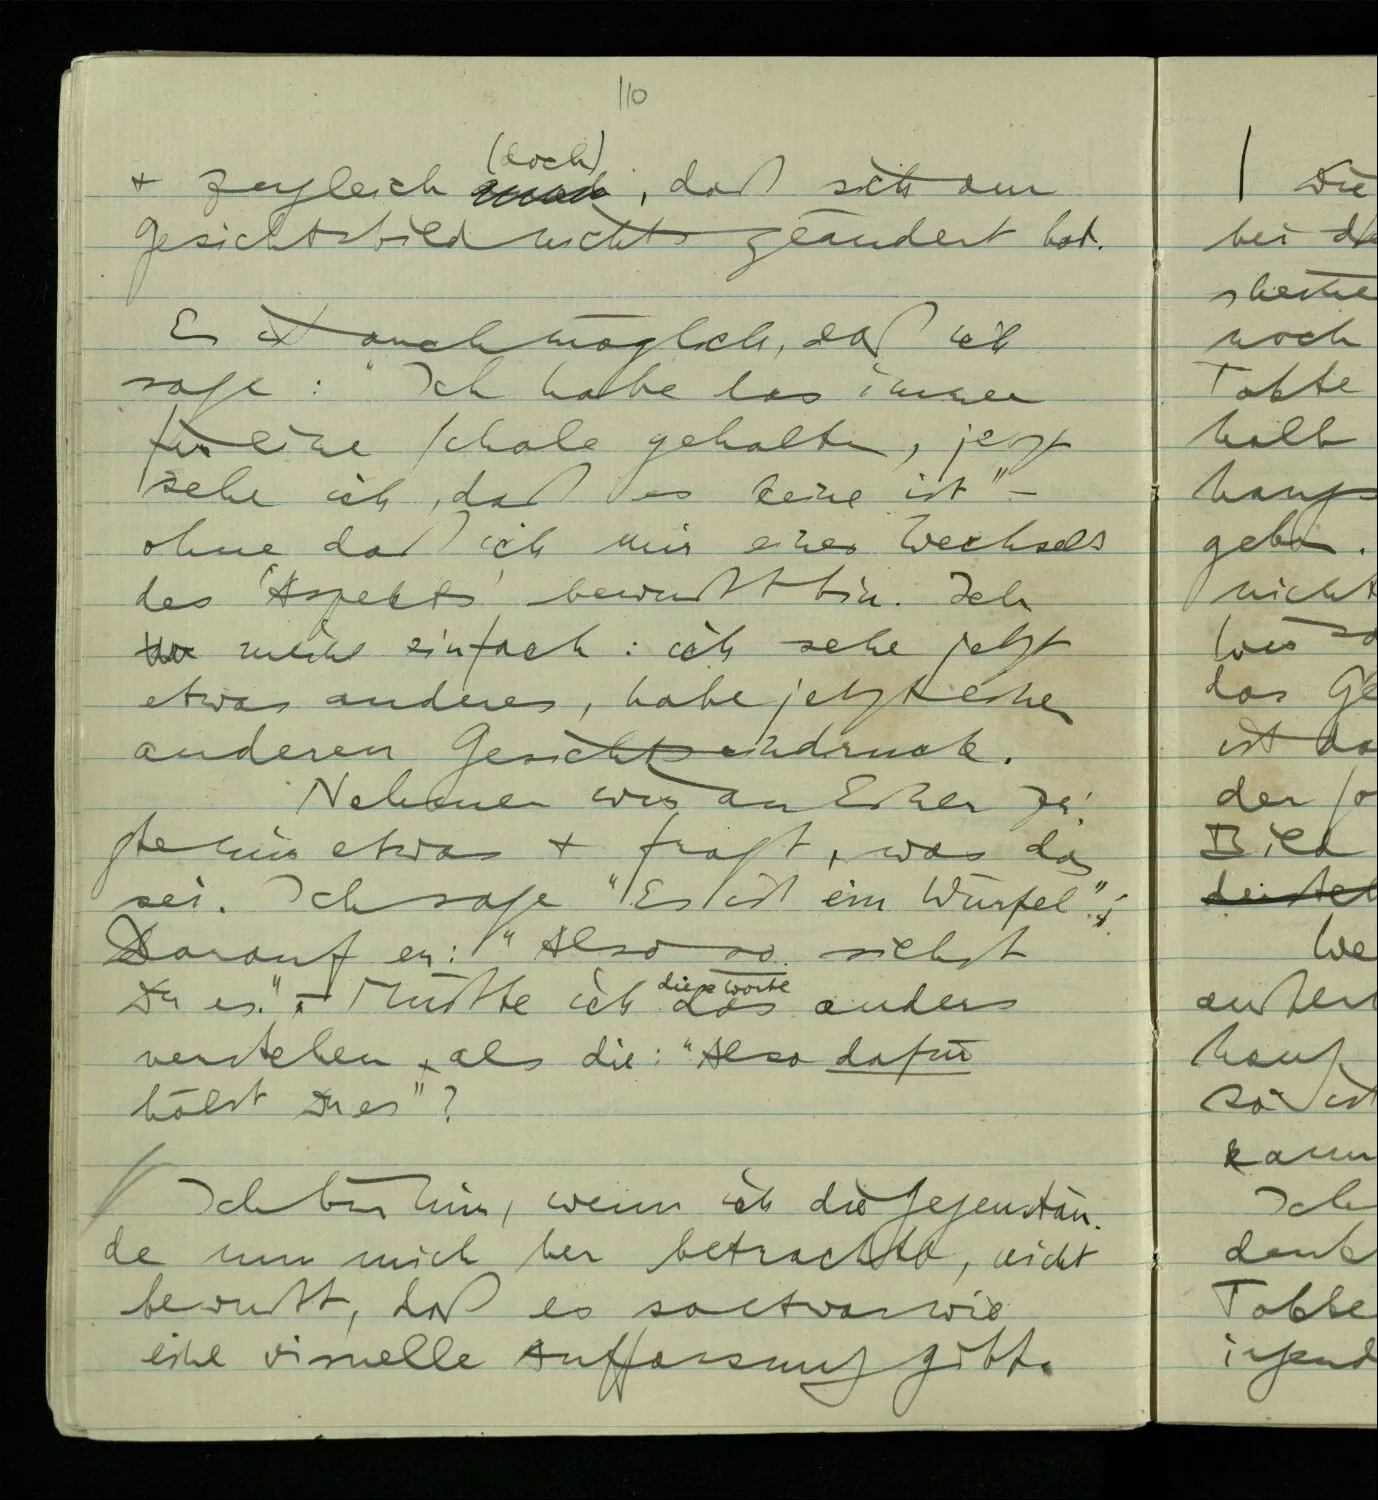 110
+ zugleich (doch), daß sich am
Gesichtsbild nichts geändert hat.
Es ist auch möglich, daß ich
sage: "Ich habe das immer
für eine Schale gehalten, jetzt
sehe ich, daß es keine ist" –
ohne daß ich mir eines Wechsels
des 'Aspekts' bewußt bin. Ich
meine einfach: ich sehe jetzt
etwas anderes, habe jetzt einen
anderen Gesichtseindruck.
Nehmen wir an Einer zei-
gte mir etwas + fragt, was das
sei. Ich sage "Es ist ein Würfel";
Darauf er: "Also so siehst
Du es." – Müßte ich das anders
diese Worte
verstehen, als die: "Also dafür
hälst Du es"?
Ich bin mir, wenn ich die Gegenstän-
de um mich her betrachte, nicht
bewußt, daß es so etwas wie
eine visuelle Auffassung gibt.
Die
bei
noch
Tokte
halb
geben.
nicht
das Ge
ist da
der so
Bild
We
außer
so ist
kann
Ich
denk
irgend